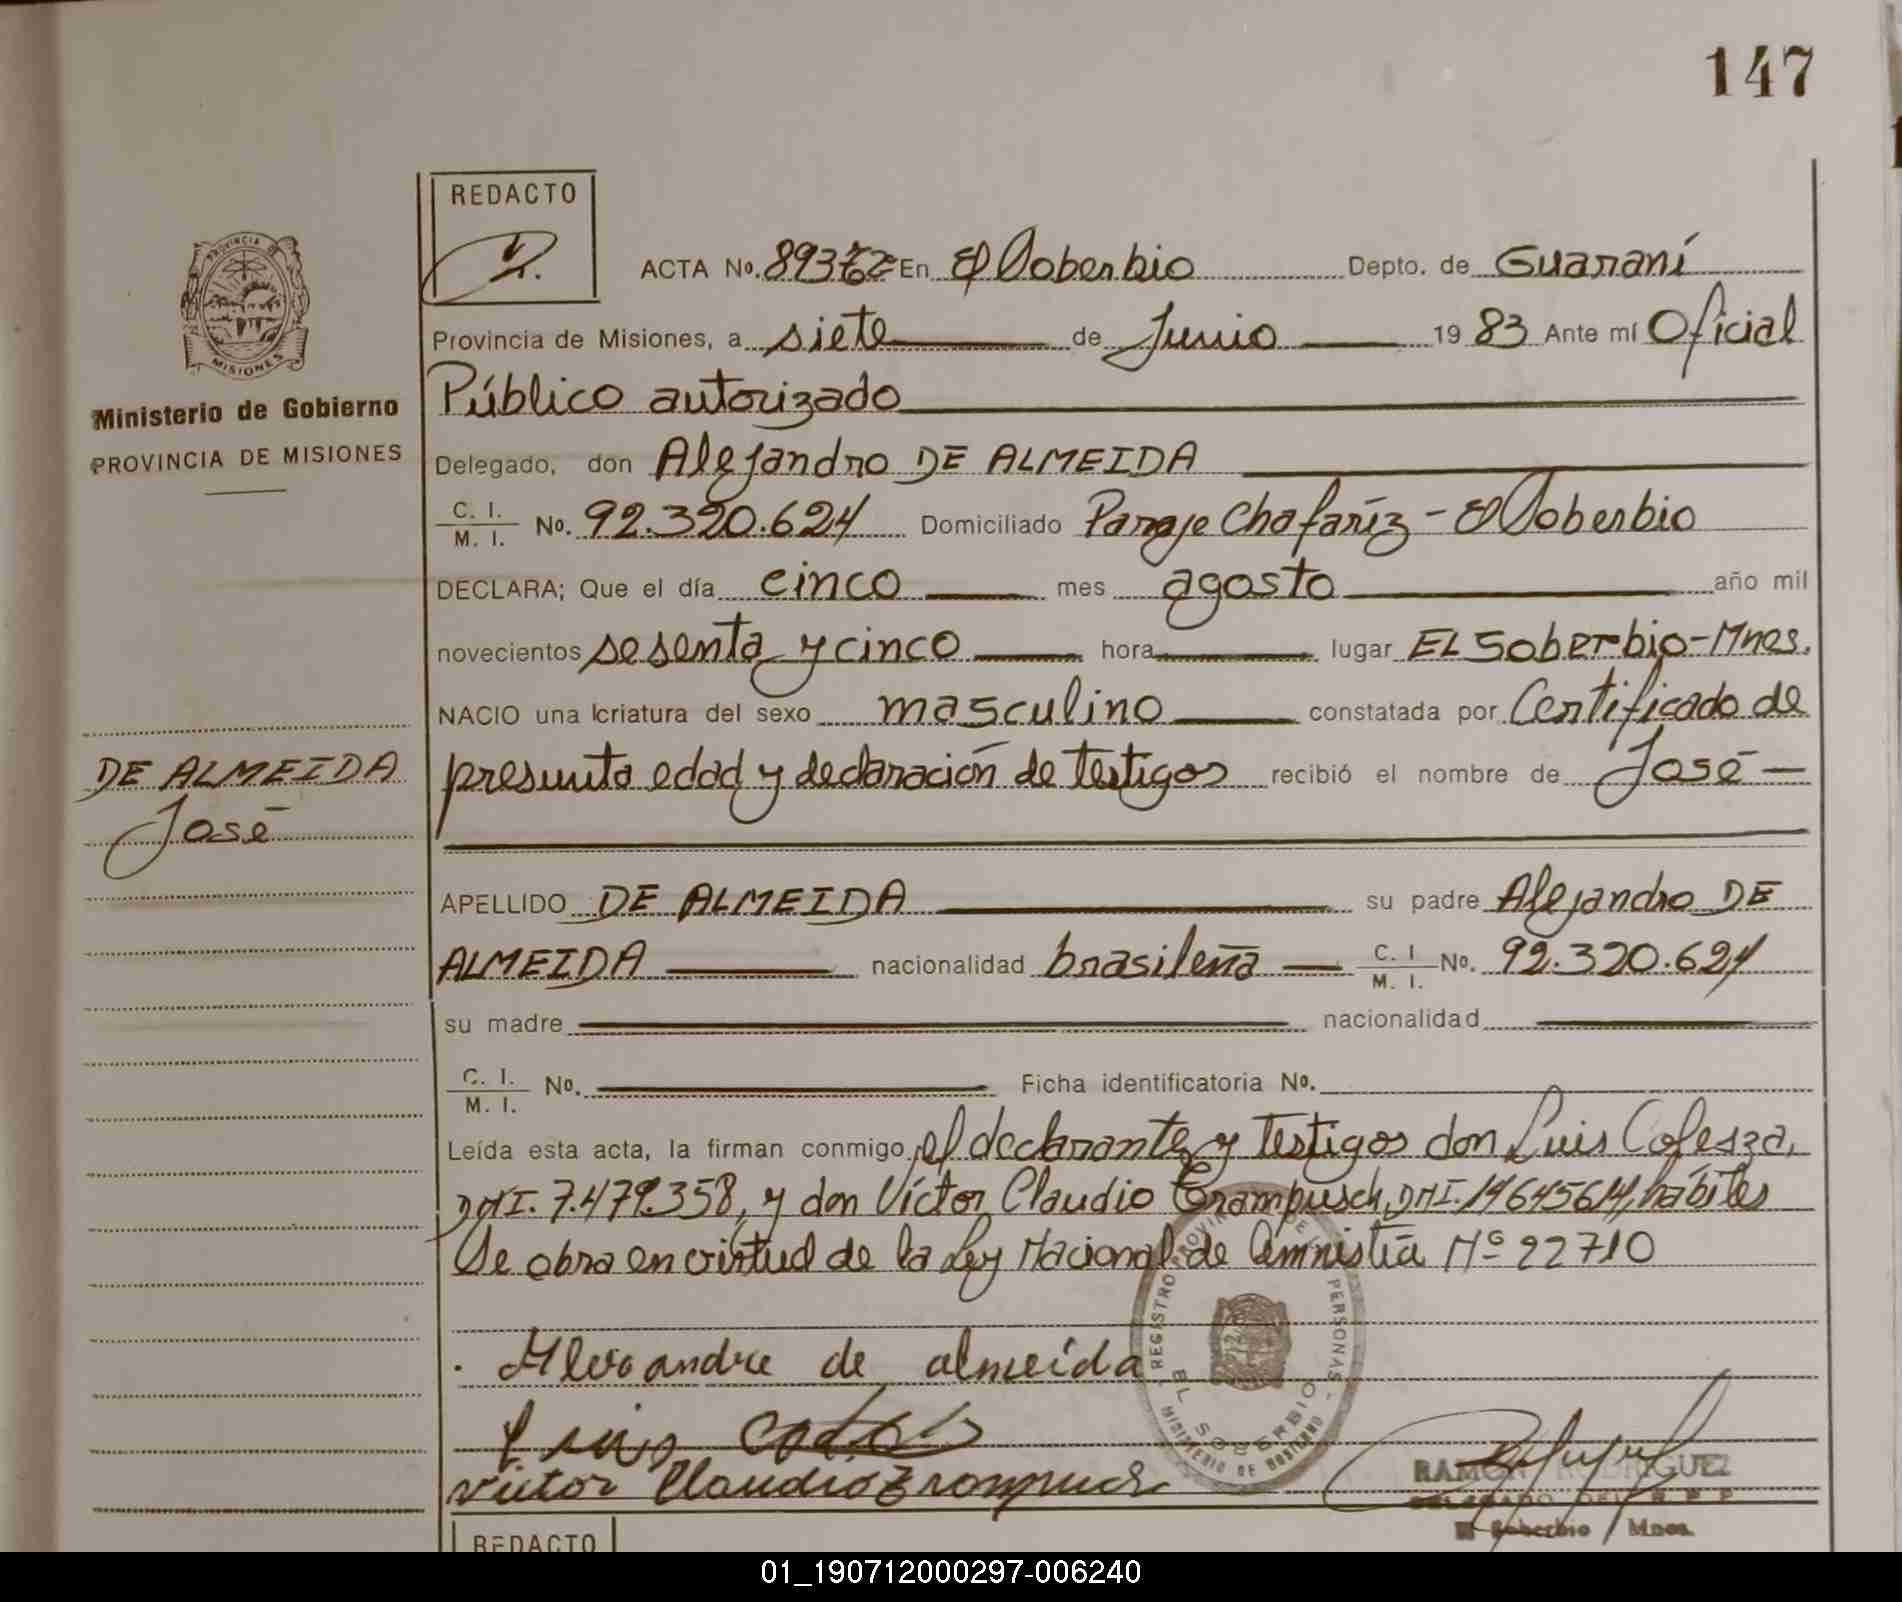 147
REDACTO
ACTA No. En El Soberbio Depto. de Guaraní
Provincia de Misiones, a siete de Junio 1983 Ante mí Oficial
Público autorizado
Delegado, don Alejandro DE ALMEIDA
C. I. M. I. No. 92.320.624 Domiciliado Paraje Chafaríz - El Soberbio
DECLARA; Que el día cinco mes agosto año mil
novecientos sesenta y cinco hora lugar EL Soberbio-Mnes.
NACIO una criatura del sexo masculino constatada por Certificado de
presunta edad y declaración de testigos recibió el nombre de José
APELLIDO DE ALMEIDA su padre Alejandro DE
ALMEIDA nacionalidad brasileña C. I. M. I. No. 92.320.624
su madre nacionalidad
C. I. M. I. No. Ficha identificatoria No.
Leída esta acta, la firman conmigo, el declarante y Testigos don Luis
DNI. 7.479.358, y don Víctor Claudio Grampusch, DNI. 14645614, hábiles
Se obra en virtud de la Ley Nacional de Amnistía Nº 22710
de almeida
Luis
Victor Claudio
PROVINCIA DE MISIONES
Ministerio de Gobierno
PROVINCIA DE MISIONES
DE ALMEIDA
José
REGISTRO PROVINCIAL DE LAS PERSONAS
EL SOBERBIO
MINISTERIO DE GOBIERNO
RAMON RODRIGUEZ
DELEGADO DEL R. P. P.
El Soberbio Mnes.
REDACTO
01_190712000297-006240